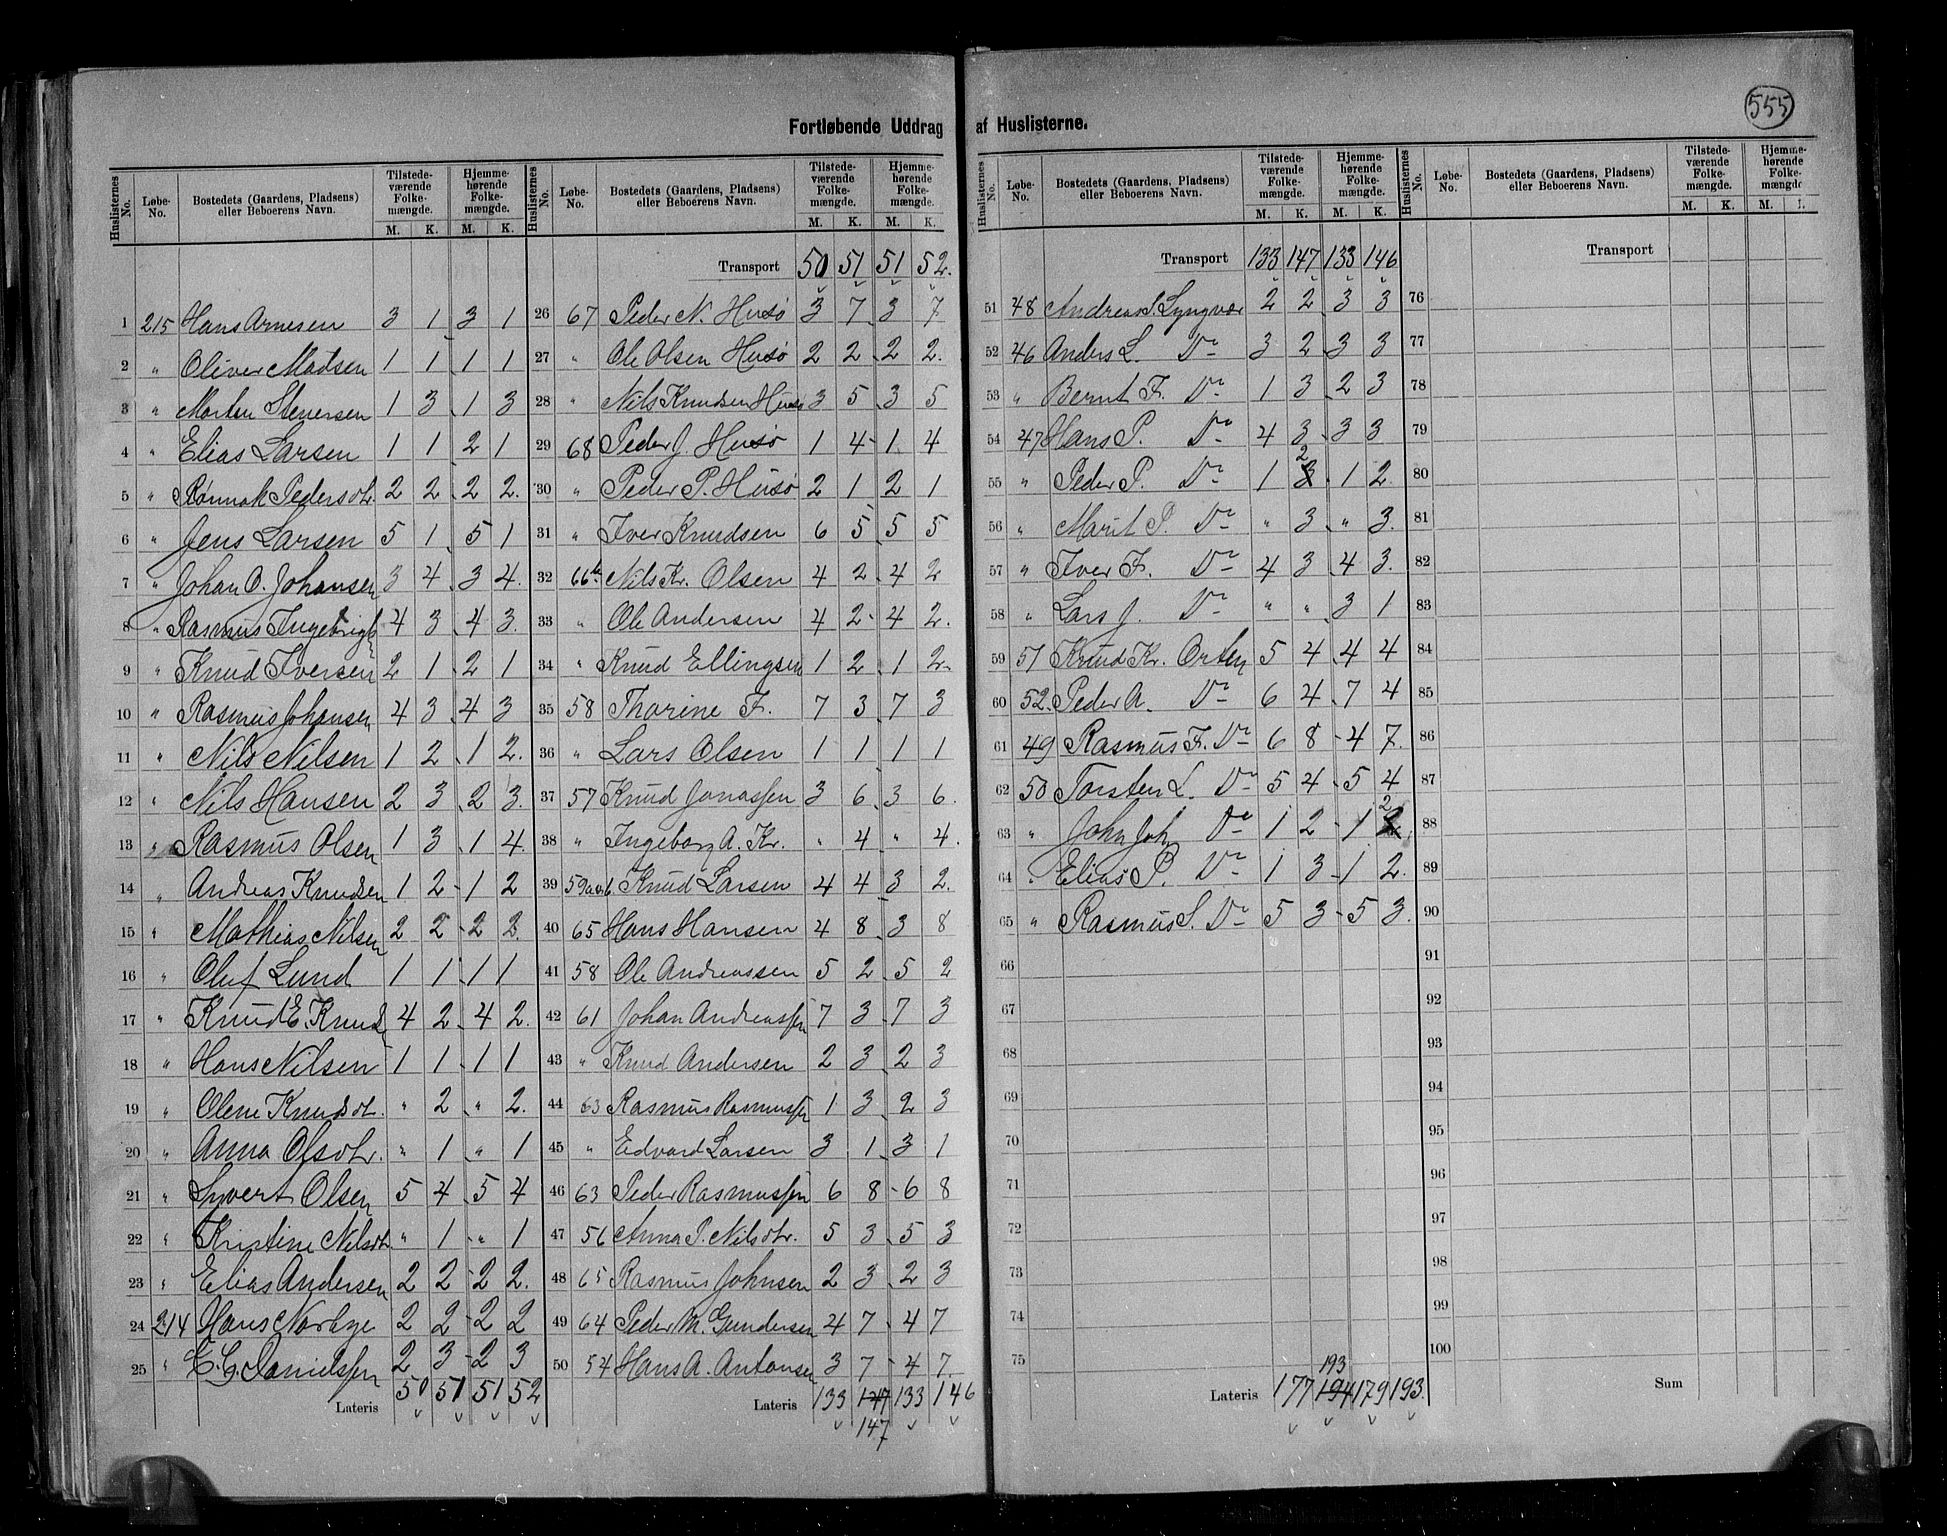 555
Fortløbende Uddrag af Huslisterne.
Huslisternes No. Løbe-No. Bostedets (Gaardens, Pladsens) eller Beboerens Navn. Tilstedeværende Folkemængde. M. K. Hjemmehørende Folkemængde. M. K.
1 215 Hans Arnesen 3 1 3 1
2 " Oliver Madsen 1 1 1 1
3 " Morten Steversen 1 3 1 3
4 " Elias Larsen 1 1 2 1
5 " Rønnak Pedersdtr. 2 2 2 2.
6 " Jens Larsen 5 1 5 1
7 " Johan O. Johansen 3 4 3 4.
8 " Rasmus Ingebrigts 4 3 4 3.
9 " Knud Iversen 2 1 2 1
10 " Rasmus Johansen 4 3 4 3
11 " Nils Nilsen 1 2 1 2.
12 " Nils Hansen 2 3 2 3.
13 " Rasmus Olsen 1 3 1 4.
14 " Andreas Knudsen 1 2 1 2
15 " Mathias Nilsen 2 2 2 2.
16 " Oluf Lund 1 1 1 1
17 " Knud E. Knuds 4 2 4 2.
18 " Hans Nilsen 1 1 1 1
19 " Olene Knudsdt. " 2 " 2.
20 " Anna Olsdtr. " 1 " 1
21 " Syvert Olsen 5 4 5 4
22 " Kristine Nilsdt. " 1 " 1
23 " Elias Andersen 2 2 2 2.
24 214 Hans Norbye 2 2 2 2
25 " E. G. Danielssen 2 3 2 3
Lateris 50 51 51 52
Huslisternes No. Løbe-No. Bostedets (Gaardens, Pladsens) eller Beboerens Navn. Tilstedeværende Folkemængde. M. K. Hjemmehørende Folkemængde. M. K.
Transport 50 51 51 52.
26 67 Peder N. Husø 3 7 3 7
27 " Ole Olsen Husø 2 2 2 2.
28 " Nils Knudsen Husø 3 5 3 5
29 68 Peder J. Husø 1 4 1 4
30 " Peder P. Husø 2 1 2 1
31 " Iver Knudsen 6 5 5 5
32 66 Nils Kr. Olsen 4 2 4 2
33 " Ole Andersen 4 2 4 2.
34 " Knud Ellingsen 1 2 1 2.
35 58 Thorine F. 7 3 7 3
36 " Lars Olsen 1 1 1 1
37 57 Knud Jonassen 3 6 3 6.
38 " Ingeborg A. Kr. " 4 " 4.
39 59 Knud Larsen 4 4 3 2.
40 65 Hans Hansen 4 8 3 8
41 58 Ole Andreassen 5 2 5 2
42 61 Johan Andreassen 7 3 7 3
43 " Knud Andersen 2 3 2 3
44 63 Rasmus Rasmussen 1 3 2 3
45 " Edvard Larsen 3 1 3 1
46 63 Peder Rasmussen 6 8 6 8
47 56 Anna P. Nilsdtr. 5 3 5 3
48 65 Rasmus Johnsen 2 3 2 3
49 64 Peder M. Gundersen 4 7 4 7
50 54 Hans A. Antonsen 3 7 4 7.
Lateris 133 147 133 146
147
Huslisternes No. Løbe-No. Bostedets (Gaardens, Pladsens) eller Beboerens Navn. Tilstedeværende Folkemængde. M. K. Hjemmehørende Folkemængde. M. K.
Transport 133 147 133 146
51 48 Andreas S. Lyngvær 2 2 3 3
52 46 Anders L. Do 3 2 3 3
53 " Bernt F. Do 1 3 2 3
54 47 Hans P. Do 4 3 3 3
55 " Peder P. Do 1 2 1 2.
56 " Marit P. Do " 3 " 3.
57 " Iver F. Do 4 3 4 3.
58 " Lars J. Do " " 3 1
59 51 Knud Kr. Orten 5 4 4 4
60 52. Peder A. Do 6 4 7 4
61 49 Rasmus F. Do 6 8 4 7.
62 50 Torsten L. Do 5 4 5 4
63 " John Joh Do 1 2 1 2
64 " Elias P. Do 1 3 1 2.
65 " Rasmus S. Do 5 3 5 3.
66
67
68
69
70
71
72
73
74
75
193
Lateris 177 194 179 193.
Huslisternes No. Løbe-No. Bostedets (Gaardens, Pladsens) eller Beboerens Navn. Tilstedeværende Folkemængde. M. K. Hjemmehørende Folkemængde. M.
Transport
76
77
78
79
80
81
82
83
84
85
86
87
88
89
90
91
92
93
94
95
96
97
98
99
100
Sum